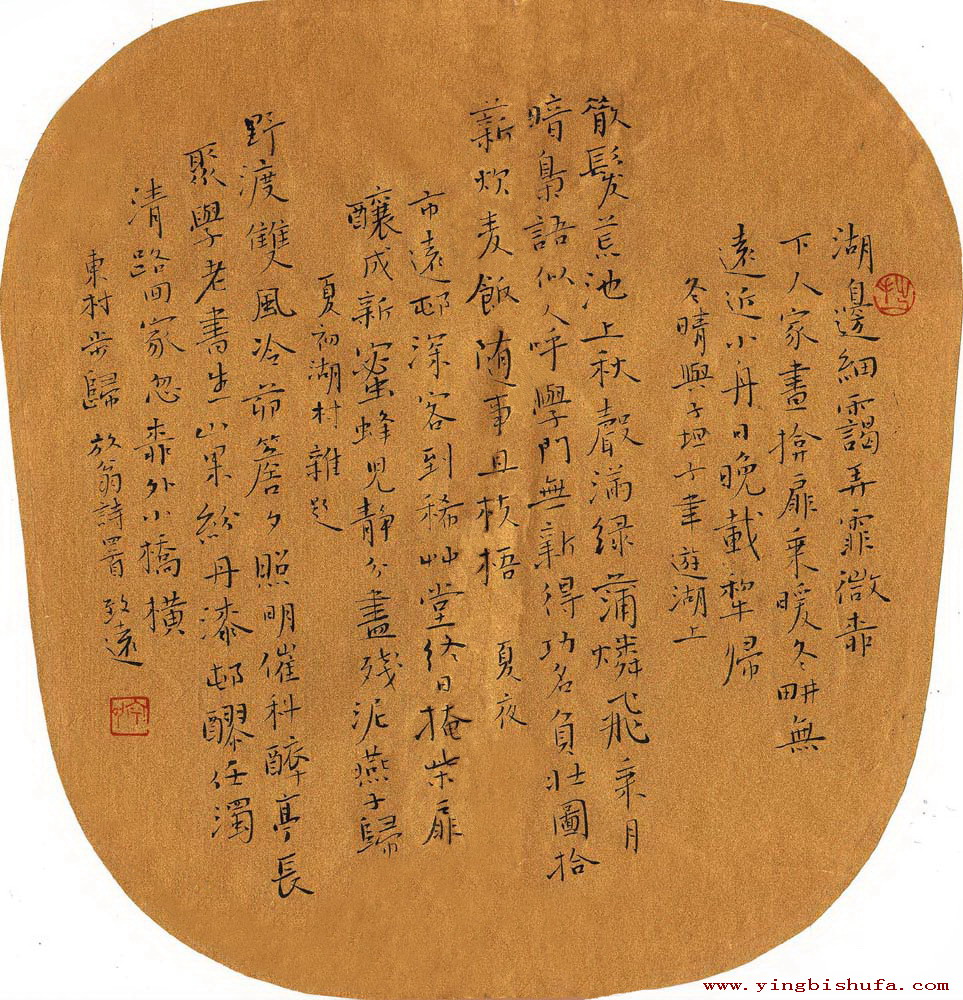 湖邊細靄弄霏微桺
下人家晝揜扉乘暖冬畊無
遠近小舟日晚載犂歸
冬晴與子坦子聿遊湖上
散髮荒池上秋聲滿綠蒲燐飛乘月
暗梟語似人呼學門無新得功名負壯圖拾
薪炊麦飯随事且枝梧 夏夜
市遠邨深客到稀艸堂終日掩柴扉
釀成新蜜蜂兒靜分盡残泥燕子歸
夏初湖村雜題
野渡雙風冷茆簷夕照明催科醉亭長
聚學老書生山果紛丹漆邨醪任濁
清路回家忽桺外小橋橫
東村步歸 放翁詩四首 致遠
www.yingbishufa.com